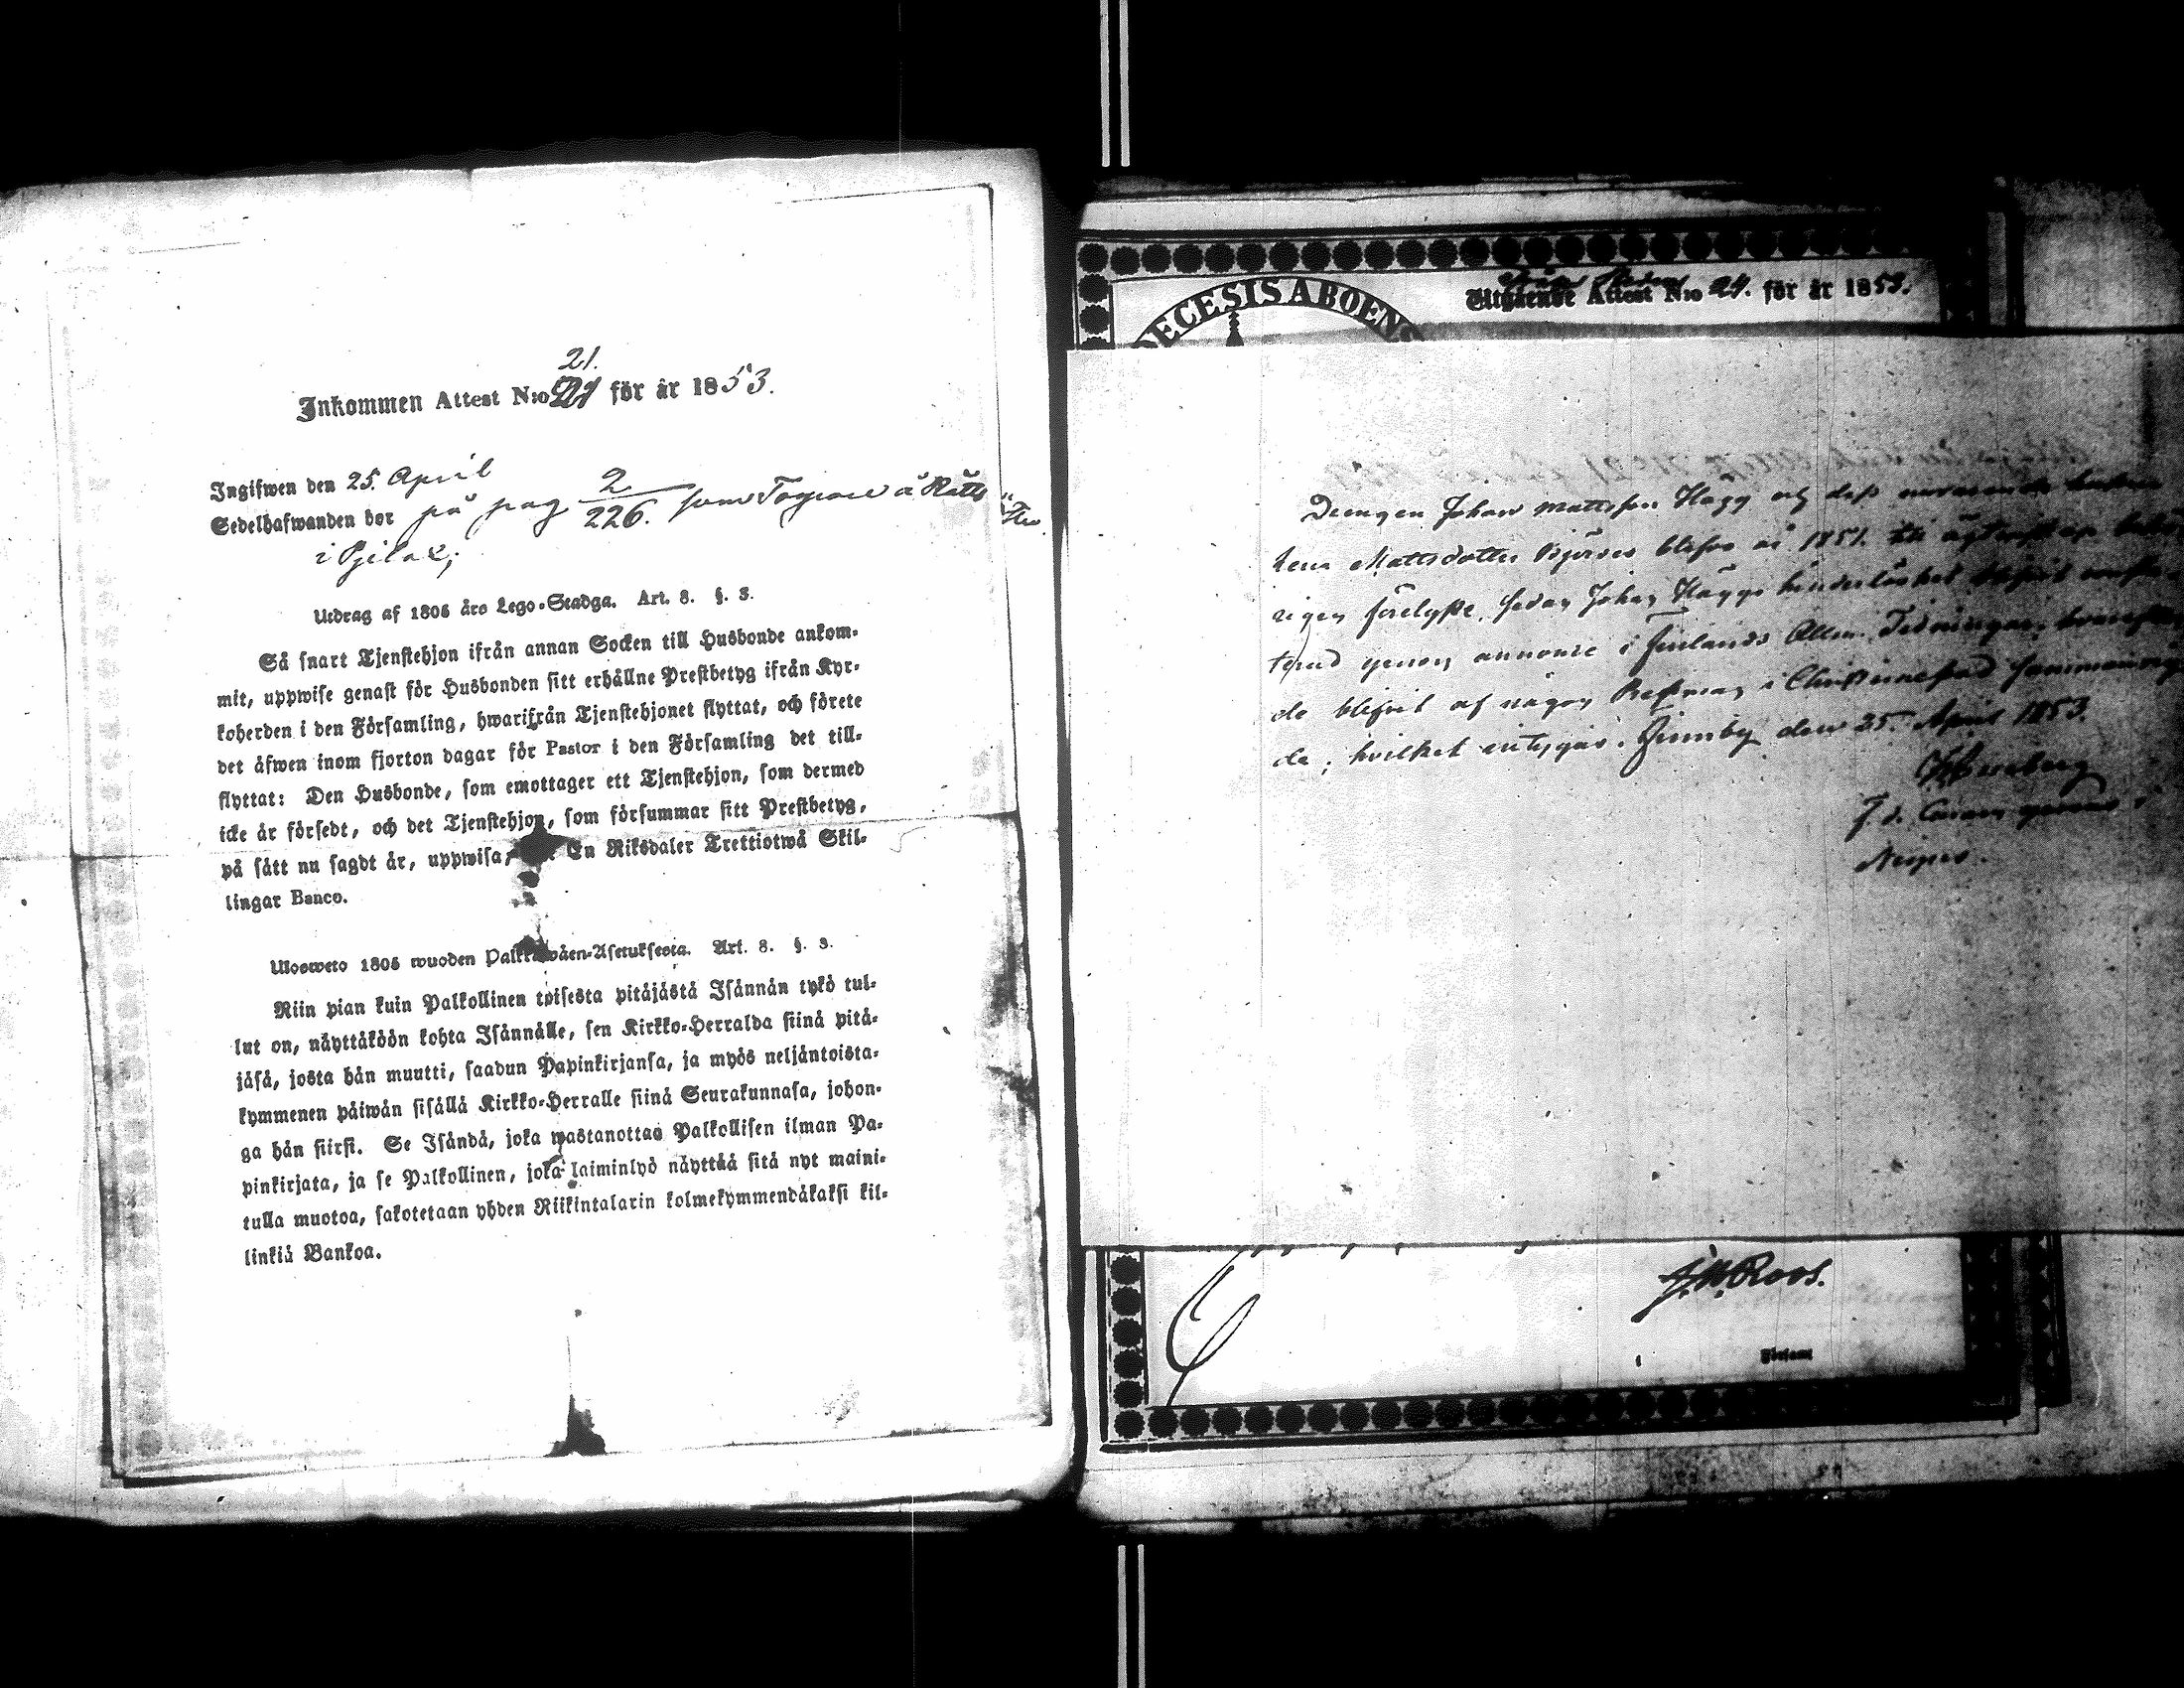 21.
Inkommen Attest N:o 21 för år 1853.
Ingifwen den 25. April
Sedelhafwanden bor på pag 2/226. som Torpare å Rätts
i Pjelax;
Utdrag af 1805 års Lego-Stadga. Art. 8. §. 3.
Så snart Tjenstehjon ifrån annan Socken till Husbonde ankom-
mit, uppwise genast för Husbonden sitt erhållne Prestbetyg ifrån Kyr-
koherden i den Församling, hwarifrån Tjenstehjonet flyttat, och förete
det äfwen inom fjorton dagar för Pastor i den Församling det till-
flyttat: Den Husbonde, som emottager ett Tjenstehjon, som dermed
icke är försedt, och det Tjenstehjon, som försummar sitt Prestbetyg,
på sätt nu sagdt är, uppwisa, En Riksdaler Trettiotwå Skil-
lingar Banco.
Ulosweto 1805 wuoden Palkkawäen-Asetuksesta. Art. 8. §. 3.
Niin pian kuin Palkollinen toisesta pitäjästä Isännän tykö tul-
lut on, näyttäköön kohta Isännälle, sen Kirkko-Herralda siinä pitä-
jäsä, josta hän muutti, saadun Papinkirjansa, ja myös neljäntoista-
kymmenen päiwän sisällä Kirkko-Herralle siinä Seurakunnasa, johon-
ga hän siirsi. Se Isändä, joka wastanottaa Palkollisen ilman Pa-
pinkirjata, ja se Palkollinen, joka laiminlyö näyttää sitä nyt maini-
tulla muotoa, sakotetaan yhden Riikintalarin kolmekymmendäkaksi kil-
linkiä Bankoa.
DIECESIS ABOENS
Utgående Attest N:o 24. för år 1853.
Drengen Johan Mattsson Hägg och dess
lena Mattsdotter Björses blefvo år 1851 till ägtenskap
rigen förelyste, sedan Johan Häggs hinderlöshet blifvit
terad genom annonce i Finlands Allm. Tidningar,
de blifvit af någon Prestman i Christinestad
de; hvilket intygas. Finnby den 25. April 1853.
Nerpes.
J.W.Roos.
Förfamt